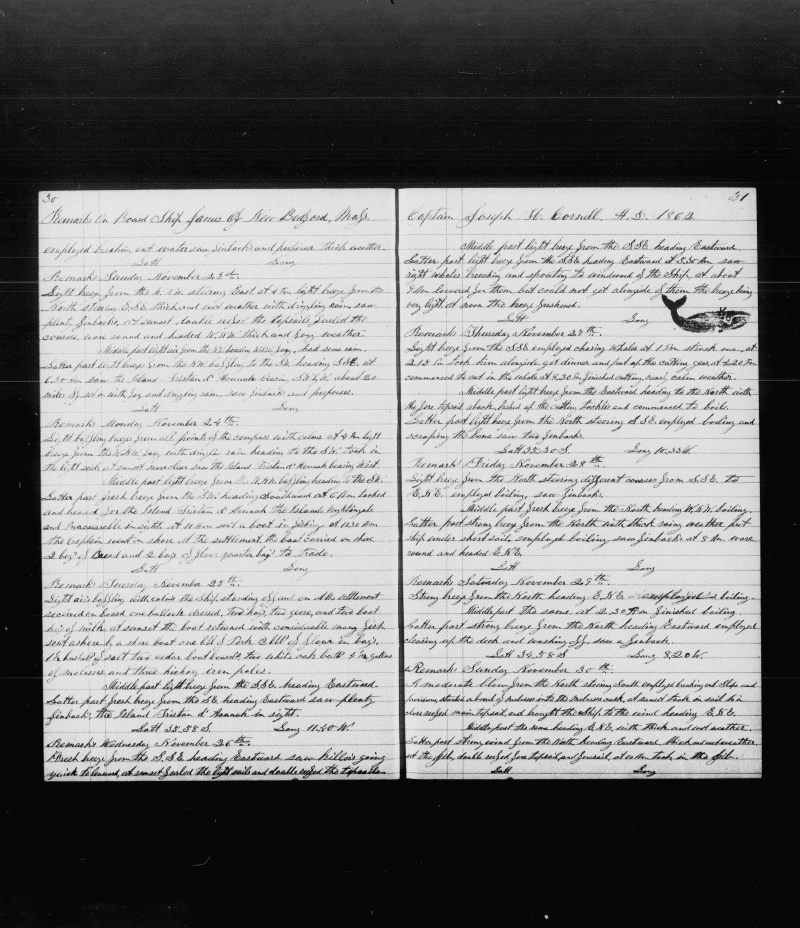 30
Remarks on Board Ship James of New Bedford, Mass
employed breaking out water saw finbacks and porpoises thick weather.
Latt Long
Remarks Sunday November 23th.
Light breeze from the N.N.W. steering East at 4 PM light breeze from the
North steering E.S.E. thick and wet weather with drizzling rain saw
plenty finbacks, at sunset, double reefed the topsails furled the
courses, wore round and headed W.N.W. thick and foggy weather.
Middle part light air from the N. heading W.N.W. foggy, had some rain.
Latter part light breeze from the N.W. baffling to the SW. heading S.S.E. at
6.30 AM saw the Island Tristan d' Acunah bearing S.W.&W. about 20
miles off set in with fog and drizzling rain, saw finbacks and porpoises.
Latt Long
Remarks Monday November 24th.
Light baffling breeze from all points of the compass with calms at 4 PM light
breeze from the W.S.W. foggy with drizzling rain heading to the S.W. took in
the light sails, at sunset more clear saw the Island Tristan d' Acunah bearing West.
Middle part light breeze from the W.N.W. baffling heading to the S.W.
Latter part fresh breeze from the S.W. heading Southward at 6 AM tacked
and headed for the Island Tristan d' Acunah the Islands Nightingale
and Inaccessible in sight. at 10 AM sent a boat in fishing at 11.30 AM
the Captain went on shore at the settlement, the boat carried on shore
2 bag's of Bread and 2 bag's of flour quarter bag's to trade.
Latt Long
Remarks Tuesday November 25th.
Light airs baffling with calms the Ship standing off and on at the settlement
received on board one bullock dressed, two hog's, two geese, and two boat
keg's of milk, at sunset the boat returned with considerable many fish
sent ashore by a shore boat one bbl of Pork 3 bbl's of Flour in bag's,
1½ bushels of salt two cedar boat boards two white oak butts 4½ gallons
of molasses, and three hickory iron poles.
Middle part light breeze from the S.S.E. heading Eastward.
Latter part fresh breeze from the SE. heading Eastward saw plenty
finbacks, the Island Tristan d' Acunah in sight.
Latt 35.58 S. Long 11.40 W.
Remarks Wednesday November 26th.
Fresh breeze from the S.S.E. heading Eastward saw killers going
quick to leeward, at sunset furled the light sails and double reefed the topsails
31
Captain Joseph W. Cornell, A.D. 1862
Middle part light breeze from the S.S.E. heading Eastward.
Latter part light breeze from the S.S.E. heading Eastward at 5.30 AM saw
right whales breeching and spouting to windward of the Ship, at about
9 AM lowered for them but could not get alongside of them the breeze being
very light at noon the breeze freshened.
Latt Long
Remarks Thursday November 27th.
Light breeze from the S.S.E. employed chasing whales at 1 PM struck one, at
2.15 PM took him alongside, got dinner and put up the cutting gear at 4.20 PM
commenced to cut in the whale at 8.30 PM finished cutting, near calm weather.
Middle part light breeze from the Eastward heading to the North with
the fore topsail aback, lashed up the cutting tackles and commenced to boil.
Latter part light breeze from the North steering S.S.E. employed boiling and
scraping the bone saw two finbacks.
Latt 35.30 S. Long 10.33 W.
Remarks Friday November 28th.
Light breeze from the North steering different courses from S.S.E. to
E.N.E. employed boiling, saw finbacks.
Middle part fresh breeze from the North heading W.N.W. boiling.
Latter part strong breeze from the North with thick rainy weather, put
ship under short sail, employed boiling saw finbacks at 8 AM wore
round and headed E.N.E.
Latt Long
Remarks Saturday November 29th.
Strong breeze from the North heading E.N.E. employed boiling.
Middle part the same, at 2.30 AM finished boiling.
Latter part strong breeze from the North heading Eastward employed
clearing up the deck and washing off, saw a finback.
Latt 34.58 S. Long 8.20 W.
Remarks Sunday November 30th.
A moderate blow from the North steering South employed breaking out Slops and
provisions, started a barrel of molasses into the molasses cask, at sunset took in sail to a
close reefed main topsail, and brought the Ship to the wind heading E.N.E.
Middle part the same heading E.N.E. with thick and wet weather
Latter part strong wind from the North heading Eastward thick and wet weather,
set the jib, double reefed fore topsail, and foresail, at noon took in the jib.
Latt Long